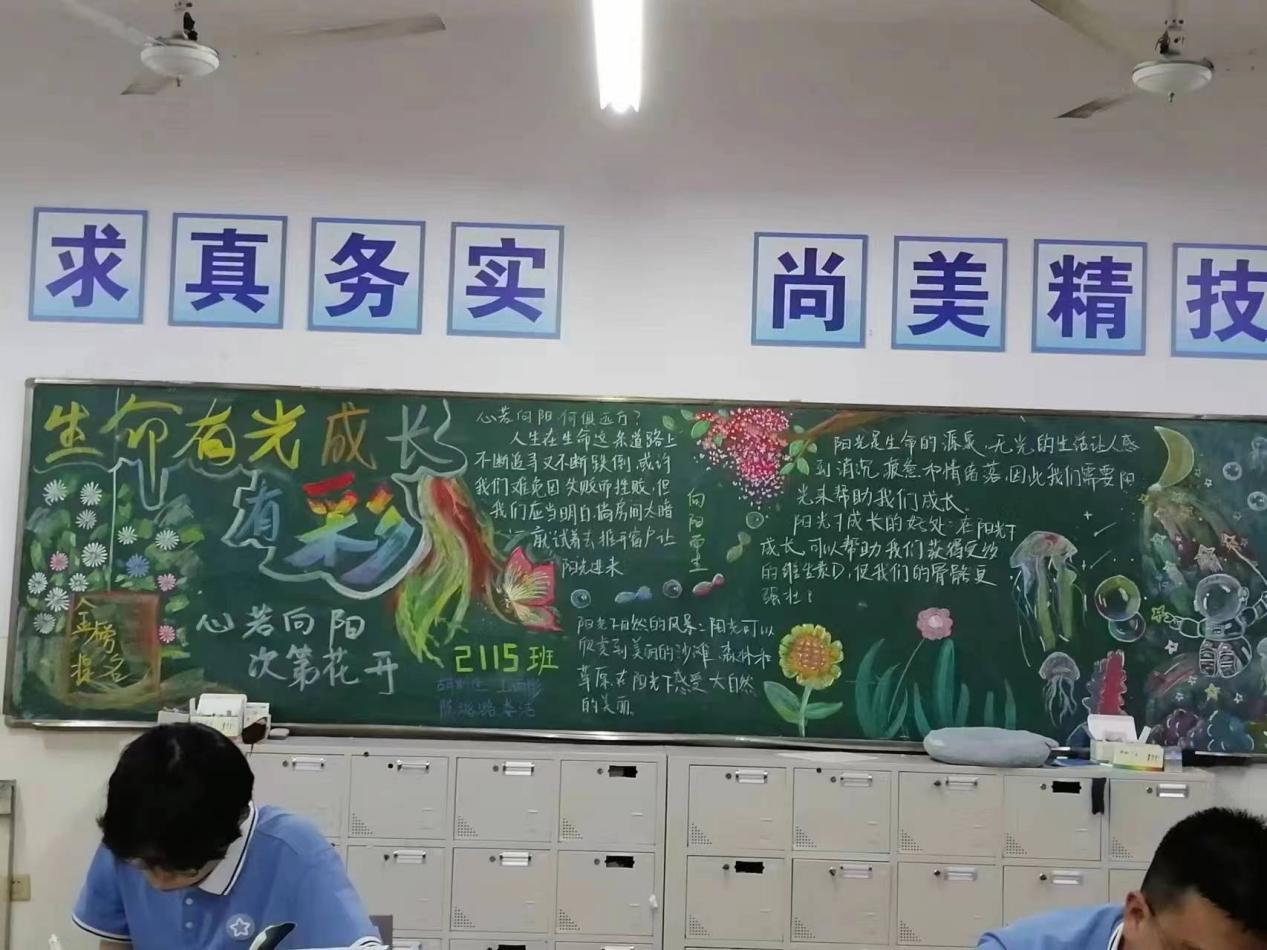 求真务实
尚美精技
生命有光成长
有彩
心若向阳
次第花开
金榜
提名
2115班
心若向阳,何惧远方?
人生在生命这条道路上
不断追寻又不断跌倒,或许
我们难免因失败而挫败,但
我们应当明白,倘房间太暗
敢试着去推开窗户让
阳光进来
向阳而生
阳光下自然的风景:阳光可以
欣赏到美丽的沙滩,森林和
草原,在阳光下感受大自然
的美丽
阳光是生命的源泉,无光的生活让人感
到消沉,疲惫和情绪落,因此我们需要阳
光来帮助我们成长
阳光下成长的好处:在阳光下
成长,可以帮助我们获得更多
的维生素D,使我们的骨骼更
强壮!